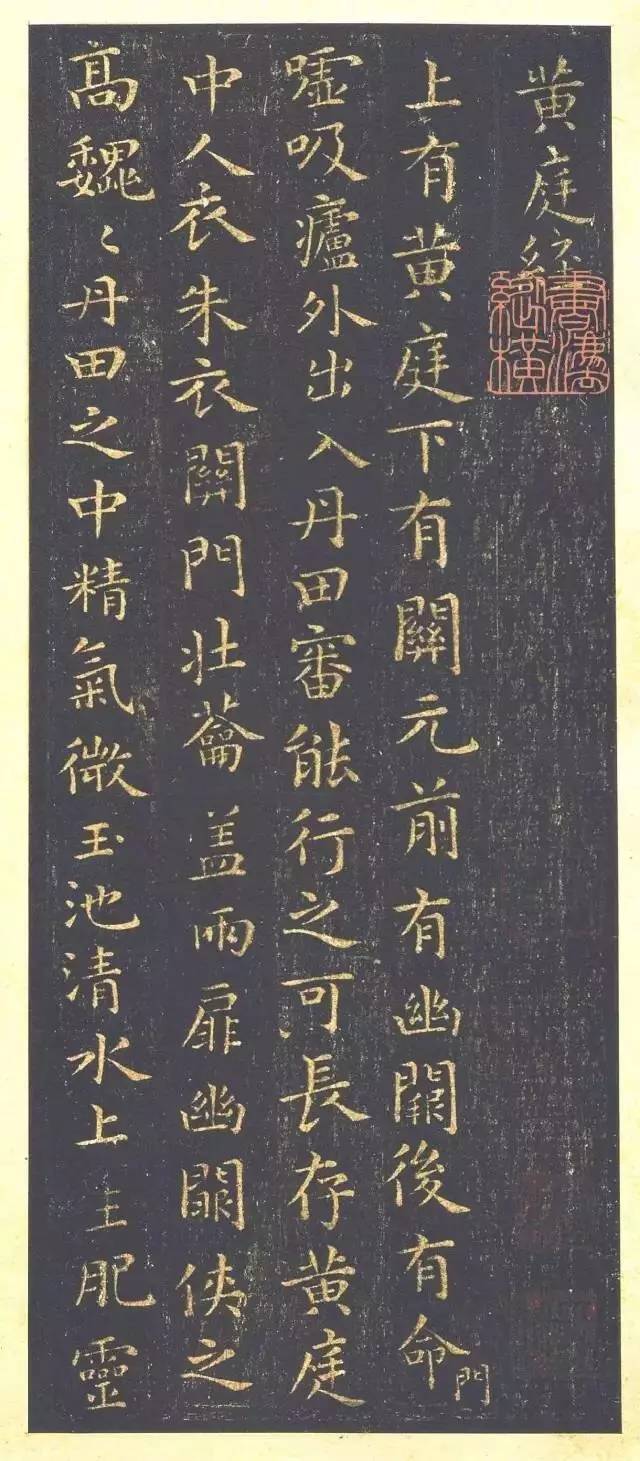 黄庭經
上有黄庭下有關元前有幽闕後有命門
嘘吸廬外出入丹田審能行之可長存黄庭
中人衣朱衣關門壮籥盖兩扉幽闕侠之
高魏〻丹田之中精氣微玉池清水上生肥靈